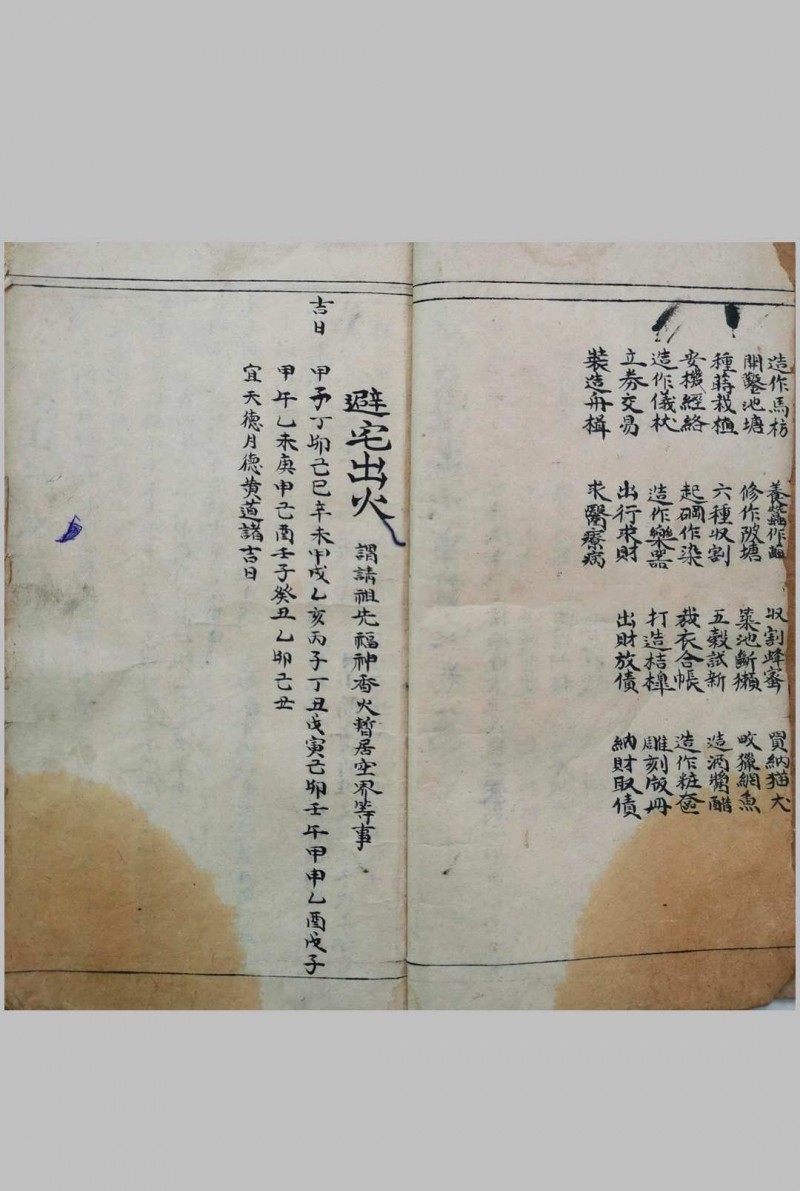 造作馬枋 養蠶作繭 収割蜂蜜 買納猫犬
開鑿池塘 修作陂塘 菜池斷獺 畋獵網魚
種蒔栽植 六種収割 五穀試新 造酒醬醋
安機經絡 起碙作染 裁衣合帳 造作粧奩
造作儀杖 造作樂器 打造桔槔 雕刻版冊
立券交易 出行求財 出財放債 納財取債
裝造舟楫 求醫療病
避宅出火 謂請祖先福神香火暫居空界等事
吉日 甲子丁卯己巳辛未甲戌乙亥丙子丁丑戊寅己卯壬午甲申乙酉戊子
甲午乙未庚申己酉壬子癸丑乙卯己丑
宜天德月德黄道諸吉日